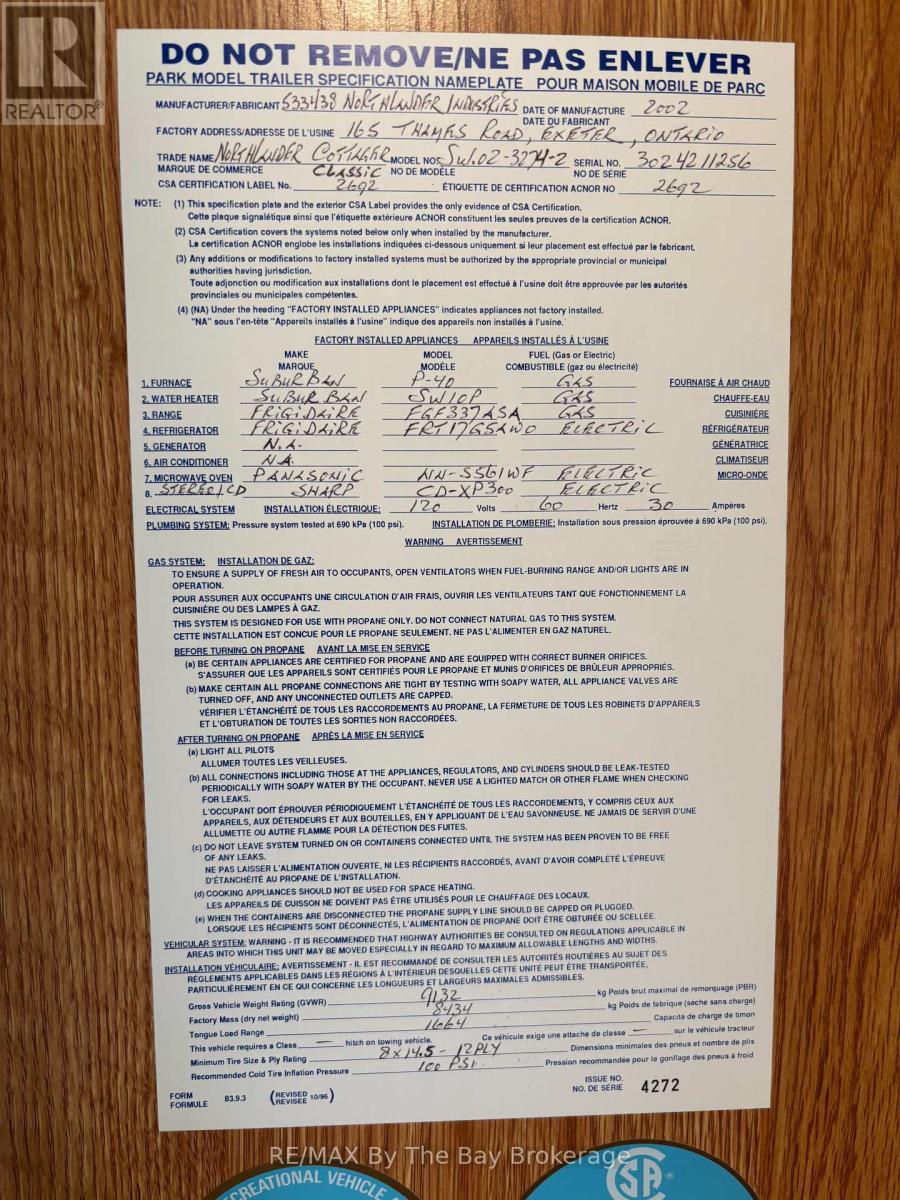 REALTOR®
DO NOT REMOVE/NE PAS ENLEVER
PARK MODEL TRAILER SPECIFICATION NAMEPLATE POUR MAISON MOBILE DE PARC
MANUFACTURER/FABRICANT 533438 NORTHLANDER INDUSTRIES DATE OF MANUFACTURE 2002
DATE DU FABRICANT
FACTORY ADDRESS/ADRESSE DE L'USINE 165 THAMES ROAD, EXETER, ONTARIO
TRADE NAME NORTHLANDER COTTAGER MODEL NOS SW.02-3274-2 SERIAL NO. 3024211256
MARQUE DE COMMERCE CLASSIC NO DE MODÈLE NO DE SÉRIE
CSA CERTIFICATION LABEL No. 2692 ÉTIQUETTE DE CERTIFICATION ACNOR NO 2692
NOTE: (1) This specification plate and the exterior CSA Label provides the only evidence of CSA Certification.
Cette plaque signalétique ainsi que l'étiquette extérieure ACNOR constituent les seules preuves de la certification ACNOR.
(2) CSA Certification covers the systems noted below only when installed by the manufacturer.
La certification ACNOR englobe les installations indiquées ci-dessous uniquement si leur placement est effectué par le fabricant.
(3) Any additions or modifications to factory installed systems must be authorized by the appropriate provincial or municipal
authorities having jurisdiction.
Toute adjonction ou modification aux installations dont le placement est effectué à l'usine doit être approuvée par les autorités
provinciales ou municipales compétentes.
(4) (NA) Under the heading "FACTORY INSTALLED APPLIANCES" indicates appliances not factory installed.
"NA" sous l'en-tête "Appareils installés à l'usine" indique des appareils non installés à l'usine.
FACTORY INSTALLED APPLIANCES APPAREILS INSTALLÉS À L'USINE
MAKE MODEL FUEL (Gas or Electric)
MARQUE MODÈLE COMBUSTIBLE (gaz ou électricité)
1. FURNACE SUBURBAN P-40 GAS FOURNAISE À AIR CHAUD
2. WATER HEATER SUBURBAN SW10P GAS CHAUFFE-EAU
3. RANGE FRIGIDAIRE FGF337ASA GAS CUISINIÈRE
4. REFRIGERATOR FRIGIDAIRE FRT17G5AWO ELECTRIC RÉFRIGÉRATEUR
5. GENERATOR N.A. GÉNÉRATRICE
6. AIR CONDITIONER N.A. CLIMATISEUR
7. MICROWAVE OVEN PANASONIC NN-S561WF ELECTRIC MICRO-ONDE
8. STEREO/CD SHARP CD-XP300 ELECTRIC
ELECTRICAL SYSTEM INSTALLATION ÉLECTRIQUE: 120 Volts 60 Hertz 30 Ampères
PLUMBING SYSTEM: Pressure system tested at 690 kPa (100 psi). INSTALLATION DE PLOMBERIE: Installation sous pression éprouvée à 690 kPa (100 psi).
WARNING AVERTISSEMENT
GAS SYSTEM: INSTALLATION DE GAZ:
TO ENSURE A SUPPLY OF FRESH AIR TO OCCUPANTS, OPEN VENTILATORS WHEN FUEL-BURNING RANGE AND/OR LIGHTS ARE IN
OPERATION.
POUR ASSURER AUX OCCUPANTS UNE CIRCULATION D'AIR FRAIS, OUVRIR LES VENTILATEURS TANT QUE FONCTIONNEMENT LA
CUISINIÈRE OU DES LAMPES À GAZ.
THIS SYSTEM IS DESIGNED FOR USE WITH PROPANE ONLY. DO NOT CONNECT NATURAL GAS TO THIS SYSTEM.
CETTE INSTALLATION EST CONCUE POUR LE PROPANE SEULEMENT. NE PAS L'ALIMENTER EN GAZ NATUREL.
BEFORE TURNING ON PROPANE AVANT LA MISE EN SERVICE
(a) BE CERTAIN APPLIANCES ARE CERTIFIED FOR PROPANE AND ARE EQUIPPED WITH CORRECT BURNER ORIFICES.
S'ASSURER QUE LES APPAREILS SONT CERTIFIÉS POUR LE PROPANE ET MUNIS D'ORIFICES DE BRÛLEUR APPROPRIÉS.
(b) MAKE CERTAIN ALL PROPANE CONNECTIONS ARE TIGHT BY TESTING WITH SOAPY WATER, ALL APPLIANCE VALVES ARE
TURNED OFF, AND ANY UNCONNECTED OUTLETS ARE CAPPED.
VÉRIFIER L'ÉTANCHÉITÉ DE TOUS LES RACCORDEMENTS AU PROPANE, LA FERMETURE DE TOUS LES ROBINETS D'APPAREILS
ET L'OBTURATION DE TOUTES LES SORTIES NON RACCORDÉES.
AFTER TURNING ON PROPANE APRÉS LA MISE EN SERVICE
(a) LIGHT ALL PILOTS
ALLUMER TOUTES LES VEILLEUSES.
(b) ALL CONNECTIONS INCLUDING THOSE AT THE APPLIANCES, REGULATORS, AND CYLINDERS SHOULD BE LEAK-TESTED
PERIODICALLY WITH SOAPY WATER BY THE OCCUPANT. NEVER USE A LIGHTED MATCH OR OTHER FLAME WHEN CHECKING
FOR LEAKS.
L'OCCUPANT DOIT ÉPROUVER PÉRIODIQUEMENT L'ÉTANCHÉITÉ DE TOUS LES RACCORDEMENTS, Y COMPRIS CEUX AUX
APPAREILS, AUX DÉTENDEURS ET AUX BOUTEILLES, EN Y APPLIQUANT DE L'EAU SAVONNEUSE. NE JAMAIS DE SERVIR D'UNE
ALLUMETTE OU AUTRE FLAMME POUR LA DÉTECTION DES FUITES.
(c) DO NOT LEAVE SYSTEM TURNED ON OR CONTAINERS CONNECTED UNTIL THE SYSTEM HAS BEEN PROVEN TO BE FREE
OF ANY LEAKS.
NE PAS LAISSER L'ALIMENTATION OUVERTE, NI LES RÉCIPIENTS RACCORDÉS, AVANT D'AVOIR COMPLÉTÉ L'ÉPREUVE
D'ÉTANCHÉITÉ AU PROPANE DE L'INSTALLATION.
(d) COOKING APPLIANCES SHOULD NOT BE USED FOR SPACE HEATING.
LES APPAREILS DE CUISSON NE DOIVENT PAS ÊTRE UTILISÉS POUR LE CHAUFFAGE DES LOCAUX.
(e) WHEN THE CONTAINERS ARE DISCONNECTED THE PROPANE SUPPLY LINE SHOULD BE CAPPED OR PLUGGED.
LORSQUE LES RÉCIPIENTS SONT DÉCONNECTÉS, L'ALIMENTATION DE PROPANE DOIT ÊTRE OBTURÉE OU SCELLÉE.
VEHICULAR SYSTEM: WARNING - IT IS RECOMMENDED THAT HIGHWAY AUTHORITIES BE CONSULTED ON REGULATIONS APPLICABLE IN
AREAS INTO WHICH THIS UNIT MAY BE MOVED ESPECIALLY IN REGARD TO MAXIMUM ALLOWABLE LENGTHS AND WIDTHS.
INSTALLATION VÉHICULAIRE: AVERTISSEMENT - IL EST RECOMMANDÉ DE CONSULTER LES AUTORITÉS ROUTIÈRES AU SUJET DES
RÉGLEMENTS APPLICABLES DANS LES RÉGIONS À L'INTÉRIEUR DESQUELLES CETTE UNITÉ PEUT ÊTRE TRANSPORTÉE,
PARTICULIÈREMENT EN CE QUI CONCERNE LES LONGUEURS ET LARGEURS MAXIMALES ADMISSIBLES.
Gross Vehicle Weight Rating (GVWR) 9132 kg Poids brut maximal de remorquage (PBR)
Factory Mass (dry net weight) 8434 kg Poids de fabrique (sèche sans charge)
Tongue Load Range 1664 Capacité de charge de timon
This vehicle requires a Class — hitch on towing vehicle. Ce véhicule exige une attache de classe — sur le véhicule tracteur
Minimum Tire Size & Ply Rating 8x14.5 - 12PLY Dimensions minimales des pneus et nombre de plis
Recommended Cold Tire Inflation Pressure 100 PSI Pression recommandée pour le gonflage des pneus à froid
FORM
FORMULE 83.9.3 (REVISED
REVISEE 10/96)
ISSUE NO.
NO. DE SÉRIE 4272
RE/MAX By The Bay Brokerage
RECREATIONAL VEHICLE
SA